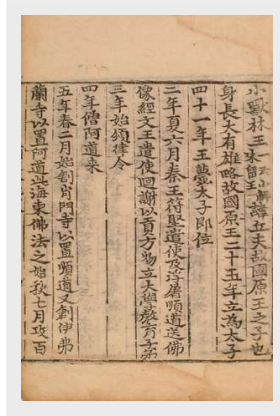 小獸林王一云小解朱留王諱丘夫故國原王之子也
身長大有雄略故國原王二十五年立為太子
四十一年王薨太子即位
二年夏六月秦王苻堅遣使及浮屠順道送佛
像經文王遣使迴謝以貢方物立大學敎育子弟
三年始頒律令
四年僧阿道來
五年春二月始創肖門寺以置順道又創伊弗
蘭寺以置阿道此海東佛法之始秋七月攻百